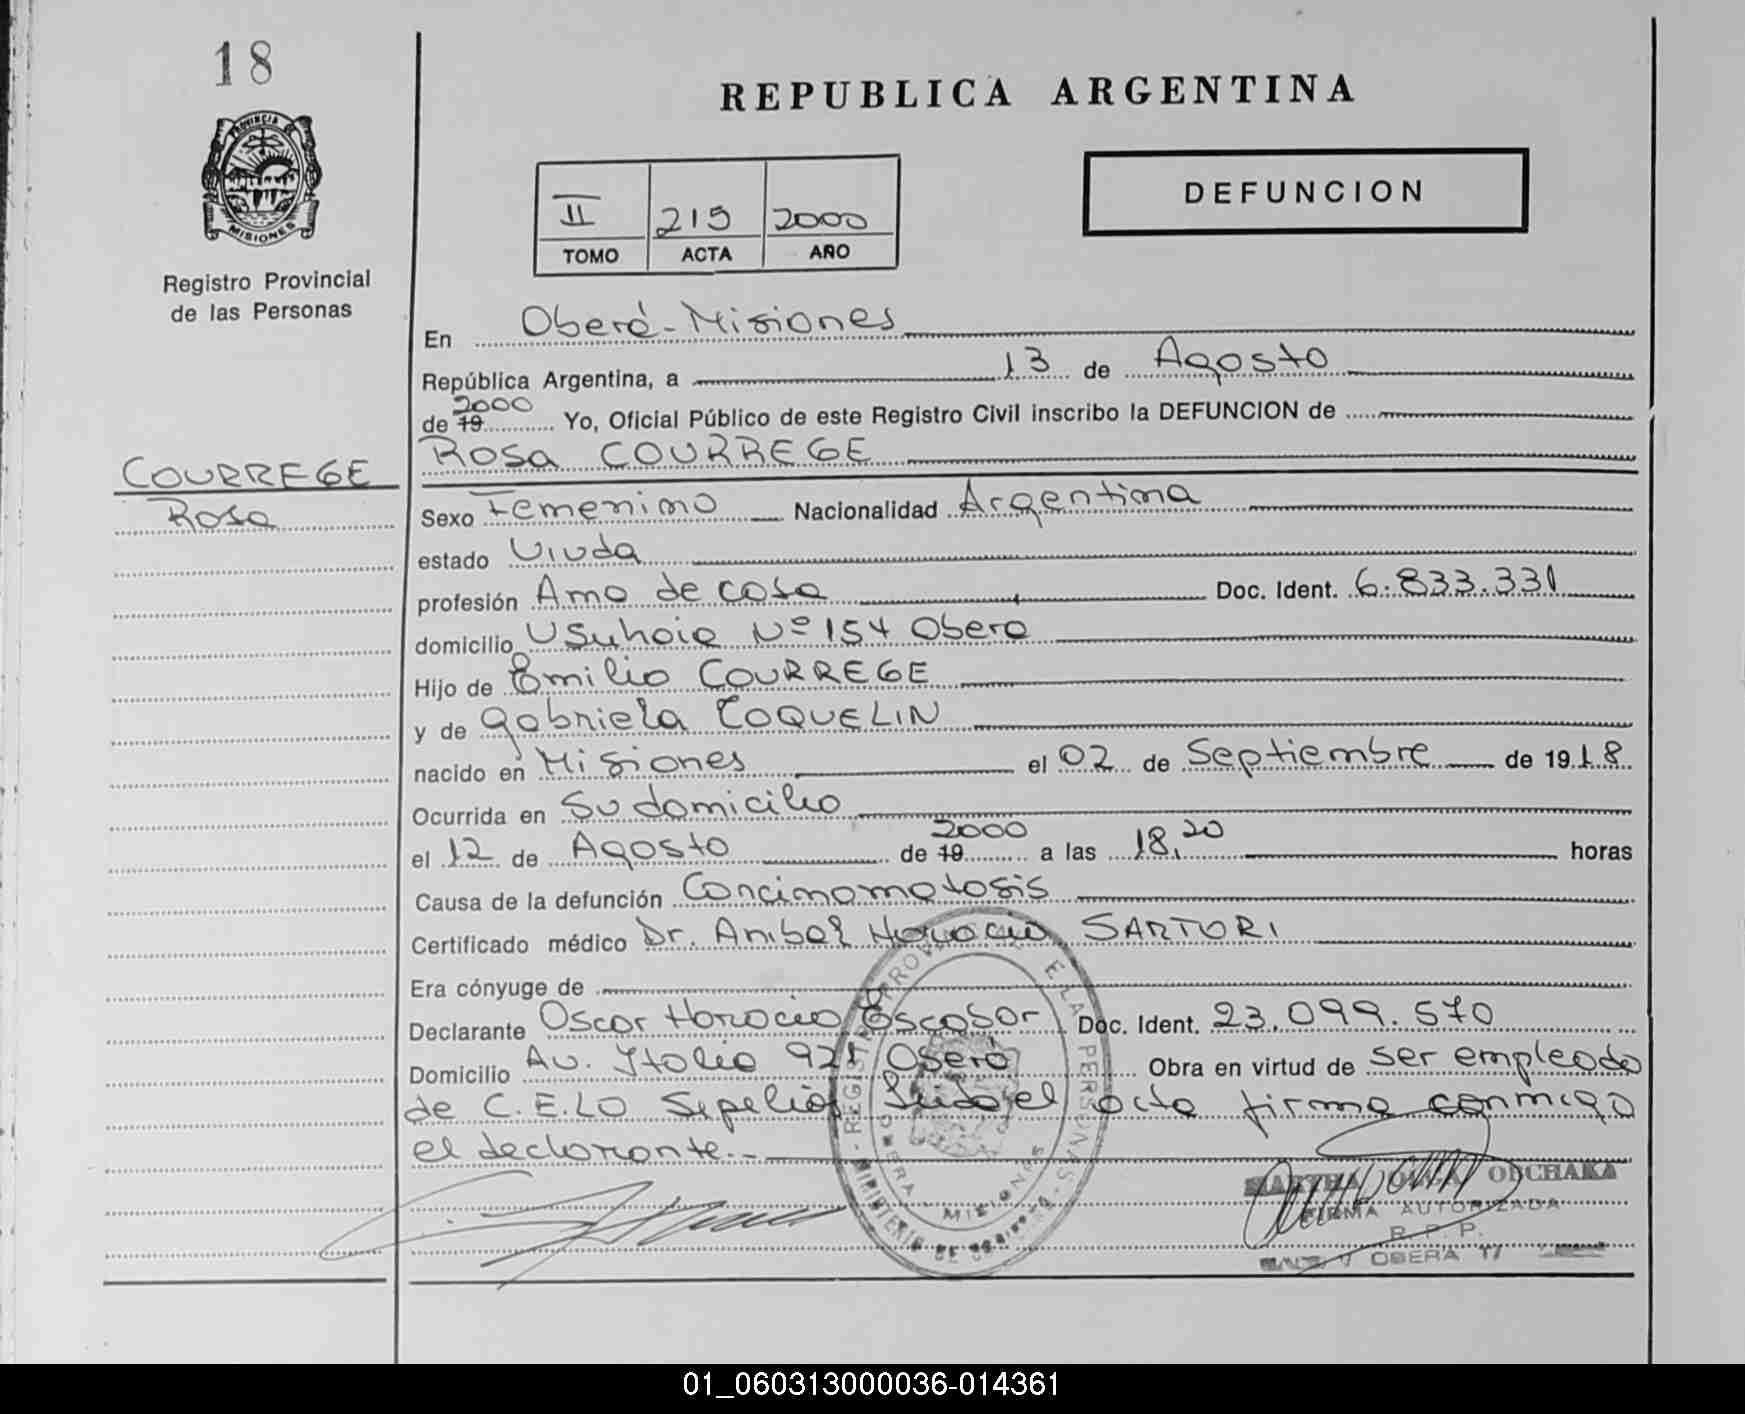 18
PROVINCIA DE
MISIONES
Registro Provincial
de las Personas
COURREGE
Rosa
REPUBLICA ARGENTINA
II 215 2000
TOMO ACTA AÑO
DEFUNCION
En Oberá-Misiones
República Argentina, a 13 de Agosto
de 19 2000 Yo, Oficial Público de este Registro Civil inscribo la DEFUNCION de
Rosa COURREGE
Sexo Femenino Nacionalidad Argentina
estado Viuda
profesión Ama de casa Doc. Ident. 6.833.331
domicilio Usuhaia Nº 154 Obera
Hijo de Emilio COURREGE
y de Gabriela COQUELIN
nacido en Misiones el 02 de Septiembre de 1918
Ocurrida en Su domicilio
el 12 de Agosto de 19 2000 a las 18,20 horas
Causa de la defunción Concinomatosis
Certificado médico Dr. Anibal Horacio SARTORI
Era cónyuge de
Declarante Oscar Horacio Escobar Doc. Ident. 23.099.570
Domicilio Av. Italia 921 Oberá Obra en virtud de ser empleado
de C.E.LO Sepelios Leida el acta firma conmigo
el declarante.-
REGISTRO PROVINCIAL DE LAS PERSONAS - MINISTERIO DE GOBIERNO
OBERA MISIONES
MARTHA OLGA
FIRMA AUTORIZADA
R. P. P.
OBERA
01_060313000036-014361